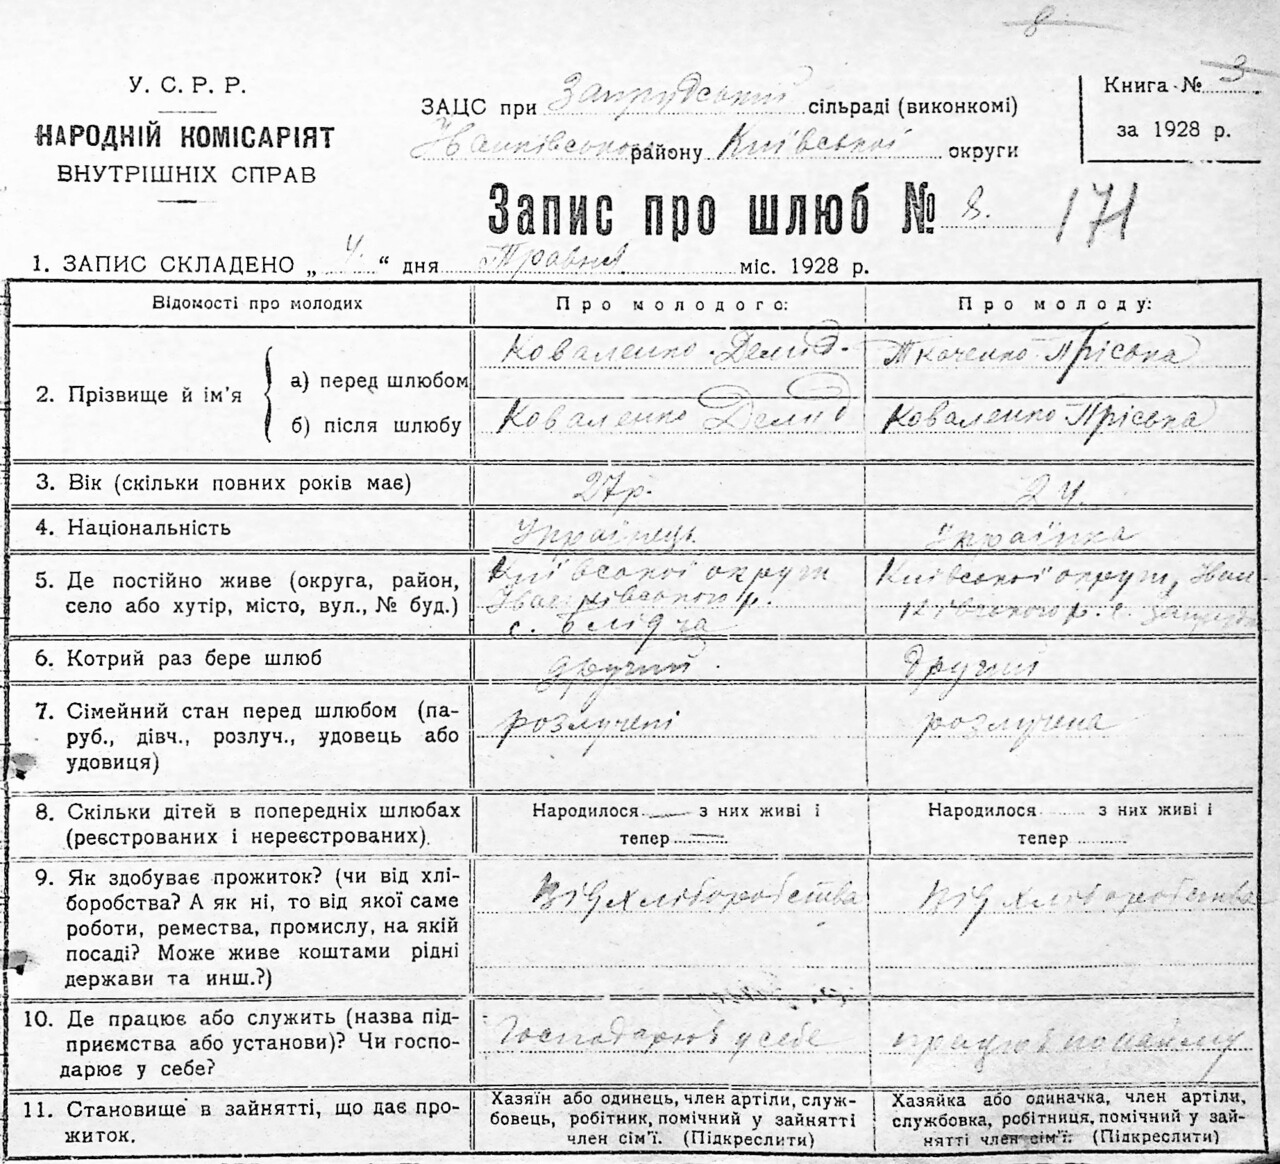 8
У. С. Р. Р.
НАРОДНІЙ КОМІСАРІЯТ
ВНУТРІШНІХ СПРАВ
ЗАЦС при Запрудський сільраді (виконкомі)
Іванківського району Київської округи
Книга № 3
за 1928 р.
Запис про шлюб № 8. 171
1. ЗАПИС СКЛАДЕНО „ 4 “ дня Травня міс. 1928 р.
Відомості про молодих
Про молодого:
Про молоду:
2. Прізвище й ім’я
а) перед шлюбом
Коваленко Демид
Ткаченко Пріська
б) після шлюбу
Коваленко Демид
Коваленко Пріська
3. Вік (скільки повних років має)
27р.
24.
4. Національність
Українець
Українка
5. Де постійно живе (округа, район,
село або хутір, місто, вул., № буд.)
Київської округи
Іванківського р.
с. Блідча
Київської округи, Іван-
ківського р. с.
6. Котрий раз бере шлюб
другий
Другий
7. Сімейний стан перед шлюбом (па-
руб., дівч., розлуч., удовець або
удовиця)
розлучені
розлучена
8. Скільки дітей в попередніх шлюбах
(реєстрованих і нереєстрованих).
Народилося — з них живі і
тепер
Народилося з них живі і
тепер
9. Як здобуває прожиток? (чи від хлі-
боробства? А як ні, то від якої саме
роботи, ремества, промислу, на якій
посаді? Може живе коштами рідні
держави та инш.?)
Від хліборобства
Від хліборобства
10. Де працює або служить (назва під-
приємства або установи)? Чи госпо-
дарює у себе?
Господарює у себе
працює по найму
11. Становище в зайнятті, що дає про-
житок.
Хазяїн або одинець, член артіли, служ-
бовець, робітник, помічний у зайнятті
член сім’ї. (Підкреслити)
Хазяйка або одиначка, член артіли,
службовка, робітниця, помічний у зай-
нятті член сім’ї. (Підкреслити)